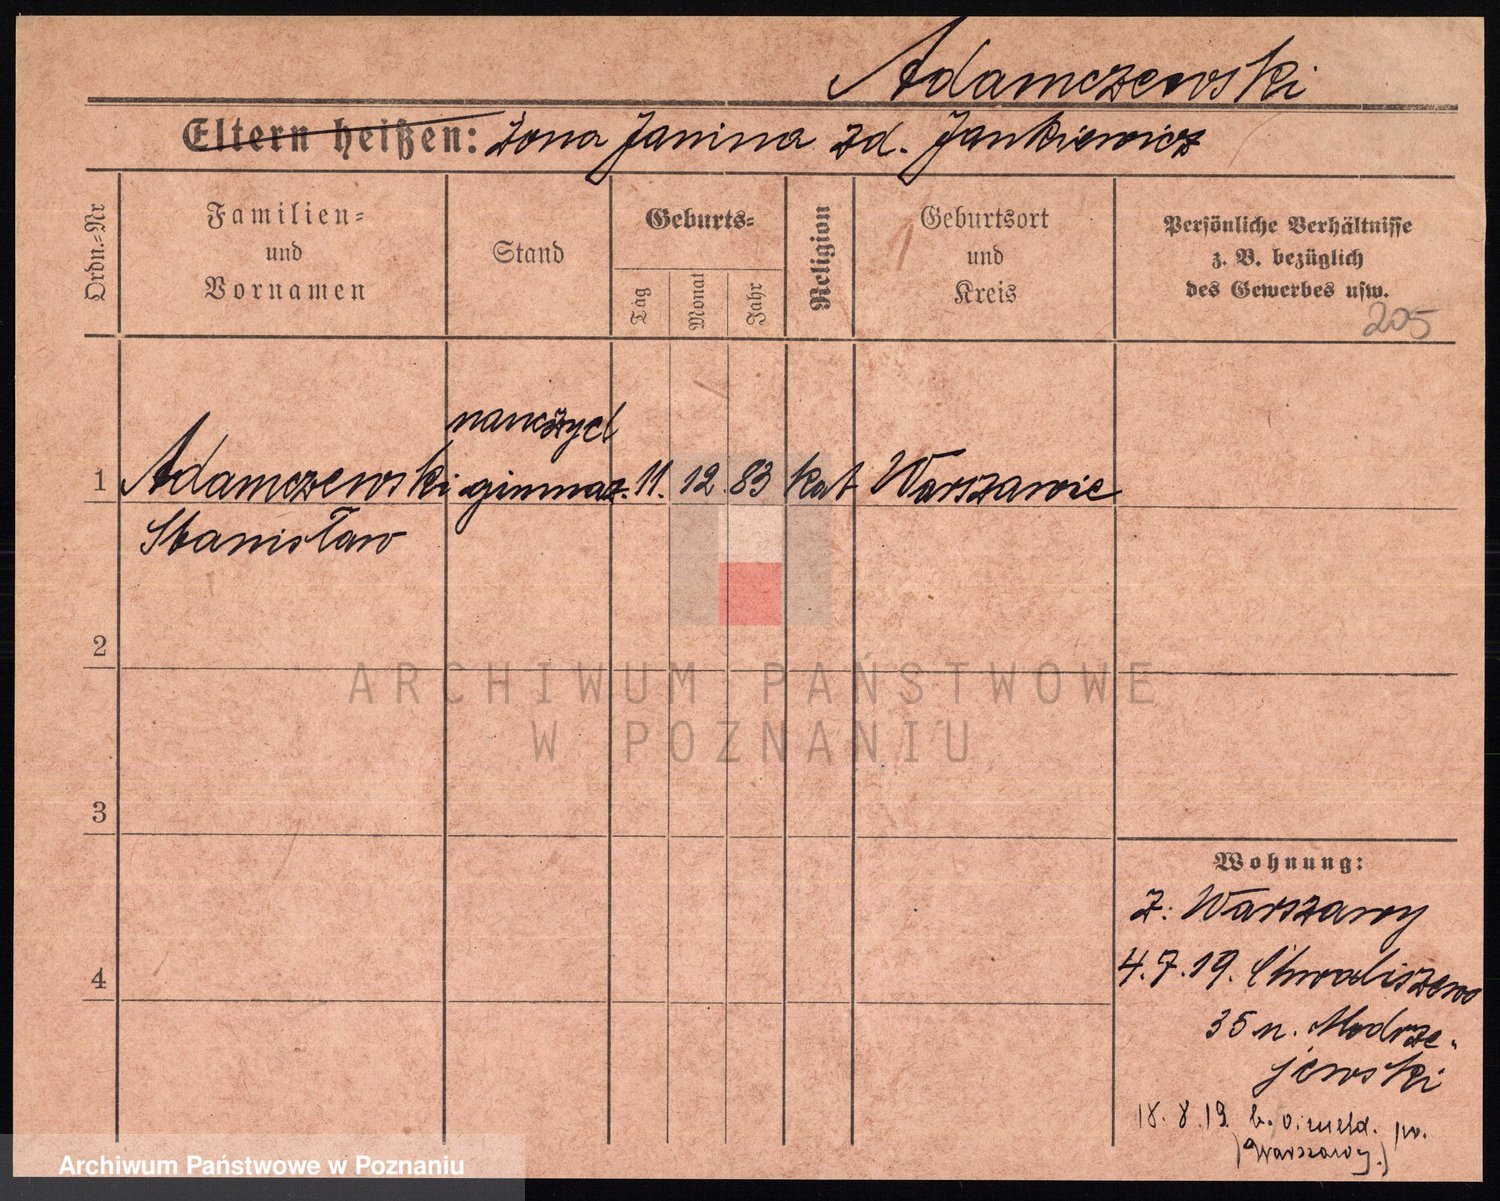 Adamczewski
Eltern heißen: żona Janina zd. Jankiewicz
Ordn.-Nr
Familien-
und
Vornamen
Stand
Geburts-
Tag
Monat
Jahr
Religion
Geburtsort
und
Kreis
Persönliche Verhältnisse
z. B. bezüglich
des Gewerbes usw.
205
nauczyciel
1 Adamczewski gimnaz. 11. 12. 83 kat Warszawie
Stanisław
2
3
4
ARCHIWUM PAŃSTWOWE
W POZNANIU
Wohnung:
Z: Warszawy
4.7.19. Chwaliszewo
35 n. Modrze-
jewski
18. 8 19. b.
(Warszawy.)
Archiwum Państwowe w Poznaniu